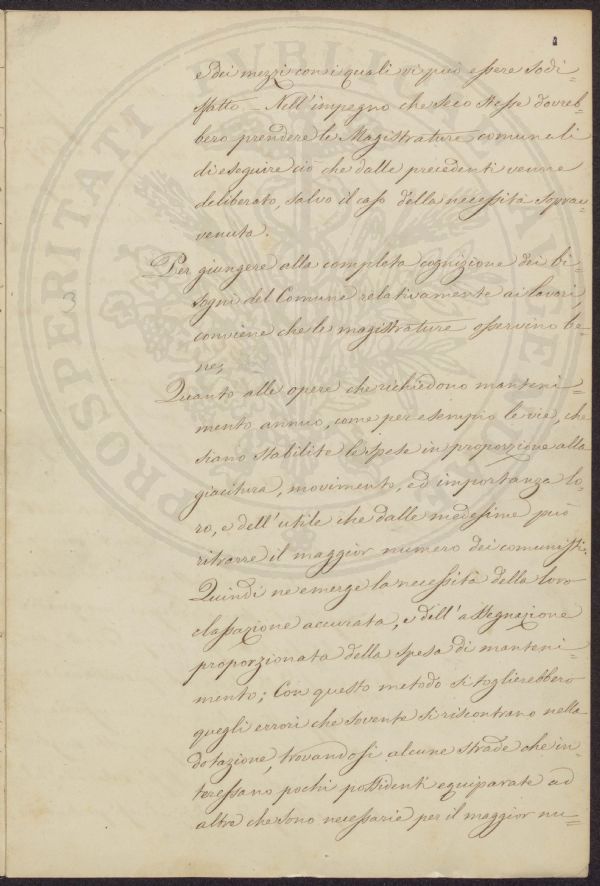 e dei mezzi con i quali vi può essere sodi=
sfatto. _ Nell'impegno che seco stesse dovreb=
bero prendere le Magistrature comunali
di eseguire ciò che dalle precedenti venne
deliberato, salvo il caso della necessità soprav=
venuta.
Per giungere alla completa cognizione dei bi=
sogni del Comune relativamente ai lavori
conviene che le magistrature osservino be=
ne;
3
Quanto alle opere che richiedono manteni=
mento annuo, come per esempio le vie, che
siano stabilite le spese in proporzione alla
giacitura, movimento, ed importanza lo=
ro, e dell'utile che dalle medesime può
ritrarre il maggior numero dei comunisti.
Quindi ne emerge la necessità della loro
classazione accurata, e dell'assegnazione
proporzionata della spesa di manteni=
mento; Con questo metodo si toglierebbero
quegli errori che sovente si riscontrano nella
dotazione, trovandosi alcune strade che in=
teressano pochi possidenti equiparate ad
altre che sono necessarie per il maggior nu=
PROSPERITATI PUBLICAE